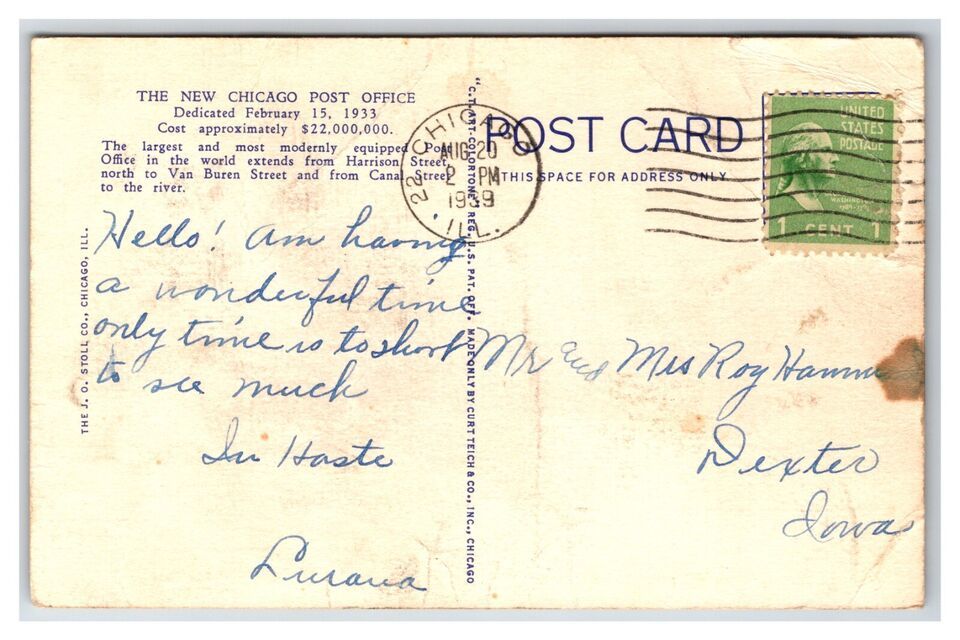 THE NEW CHICAGO POST OFFICE
Dedicated February 15, 1933
Cost approximately $22,000,000.
The largest and most modernly equipped Post
Office in the world extends from Harrison Street,
north to Van Buren Street and from Canal Street
to the river.
Hello! Am having
a wonderful time
only time is to short
to see much
In Haste
Lurana
THE J. O. STOLL CO., CHICAGO, ILL.
"C.T. ART-COLORTONE" REG. U.S. PAT. OFF. MADE ONLY BY CURT TEICH & CO., INC., CHICAGO
POST CARD
THIS SPACE FOR ADDRESS ONLY
22 CHICAGO
AUG 20
2 PM
1939
ILL.
UNITED
STATES
POSTAGE
WASHINGTON
1 CENT 1
Mr and Mrs Roy
Dexter
Iowa